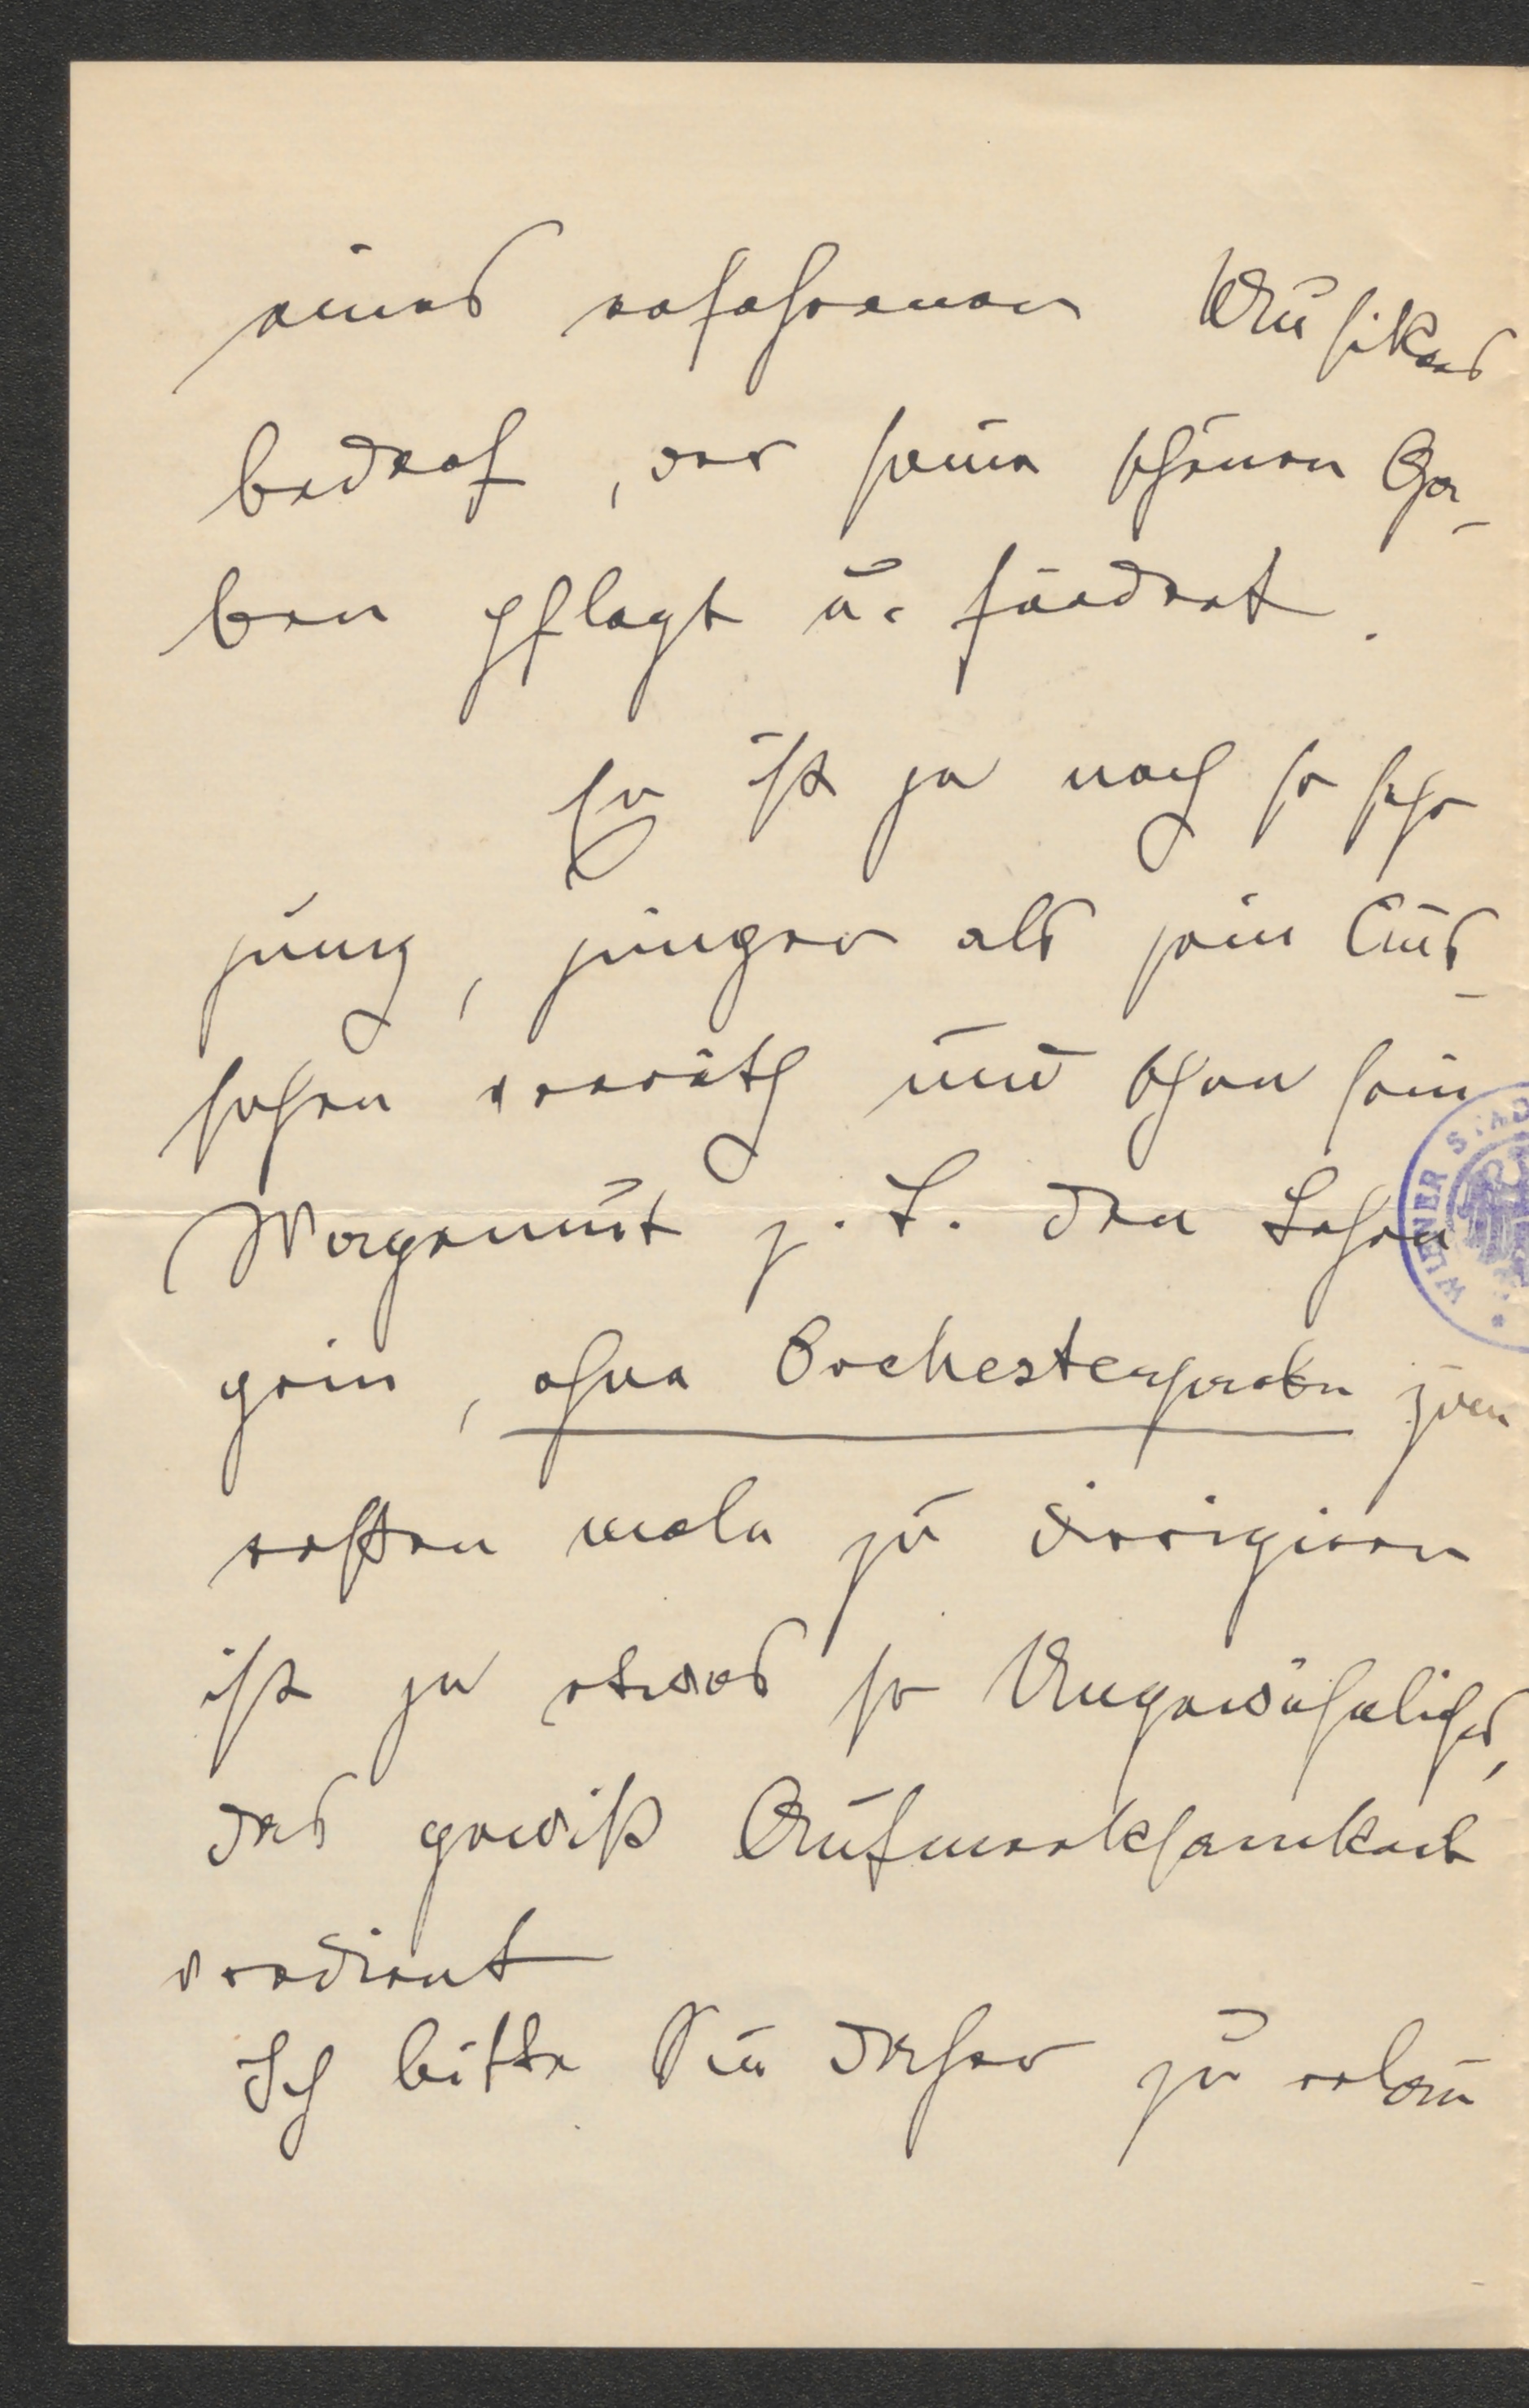 eines erfahrenen Musikers
bedarf, der seine schönen Ga-
ben pflegt u. fördert.
Er ist ja noch so sehr
jung, jünger als sein Aus-
sehen verräth und schon sein
Wagemut z. B. den Lohen
grin, ohne Orchesterproben zum
ersten male zu dirigieren
ist ja etwas so Ungewöhnliches,
das gewiß Aufmerksamkeit
verdient
Ich bitte Sie daher zu erlau
WIENER STAD